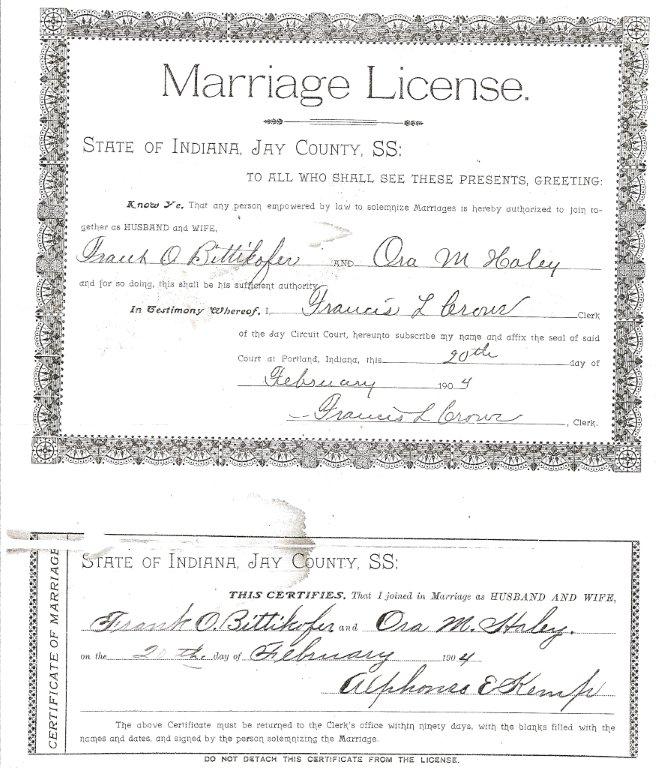 Marriage License.
STATE OF INDIANA, JAY COUNTY, SS:
TO ALL WHO SHALL SEE THESE PRESENTS, GREETING:
Know Ye, That any person empowered by law to solemnize Marriages is hereby authorized to join to-
gether as HUSBAND and WIFE,
Frank O Bittikofer AND Ora M Haley
and for so doing, this shall be his sufficient authority
In Testimony Whereof, I, Francis L Crowe Clerk
of the Jay Circuit Court, hereunto subscribe my name and affix the seal of said
Court at Portland, Indiana, this 20th day of
February 1904
Francis L Crowe, Clerk.
CERTIFICATE OF MARRIAGE
STATE OF INDIANA, JAY COUNTY, SS:
THIS CERTIFIES, That I joined in Marriage as HUSBAND AND WIFE,
Frank O. Bittikofer and Ora M. Haley.
on the 20th day of February 1904
Alphonso E Kemp
The above Certificate must be returned to the Clerk's office within ninety days, with the blanks filled with the
names and dates, and signed by the person solemnizing the Marriage.
DO NOT DETACH THIS CERTIFICATE FROM THE LICENSE.